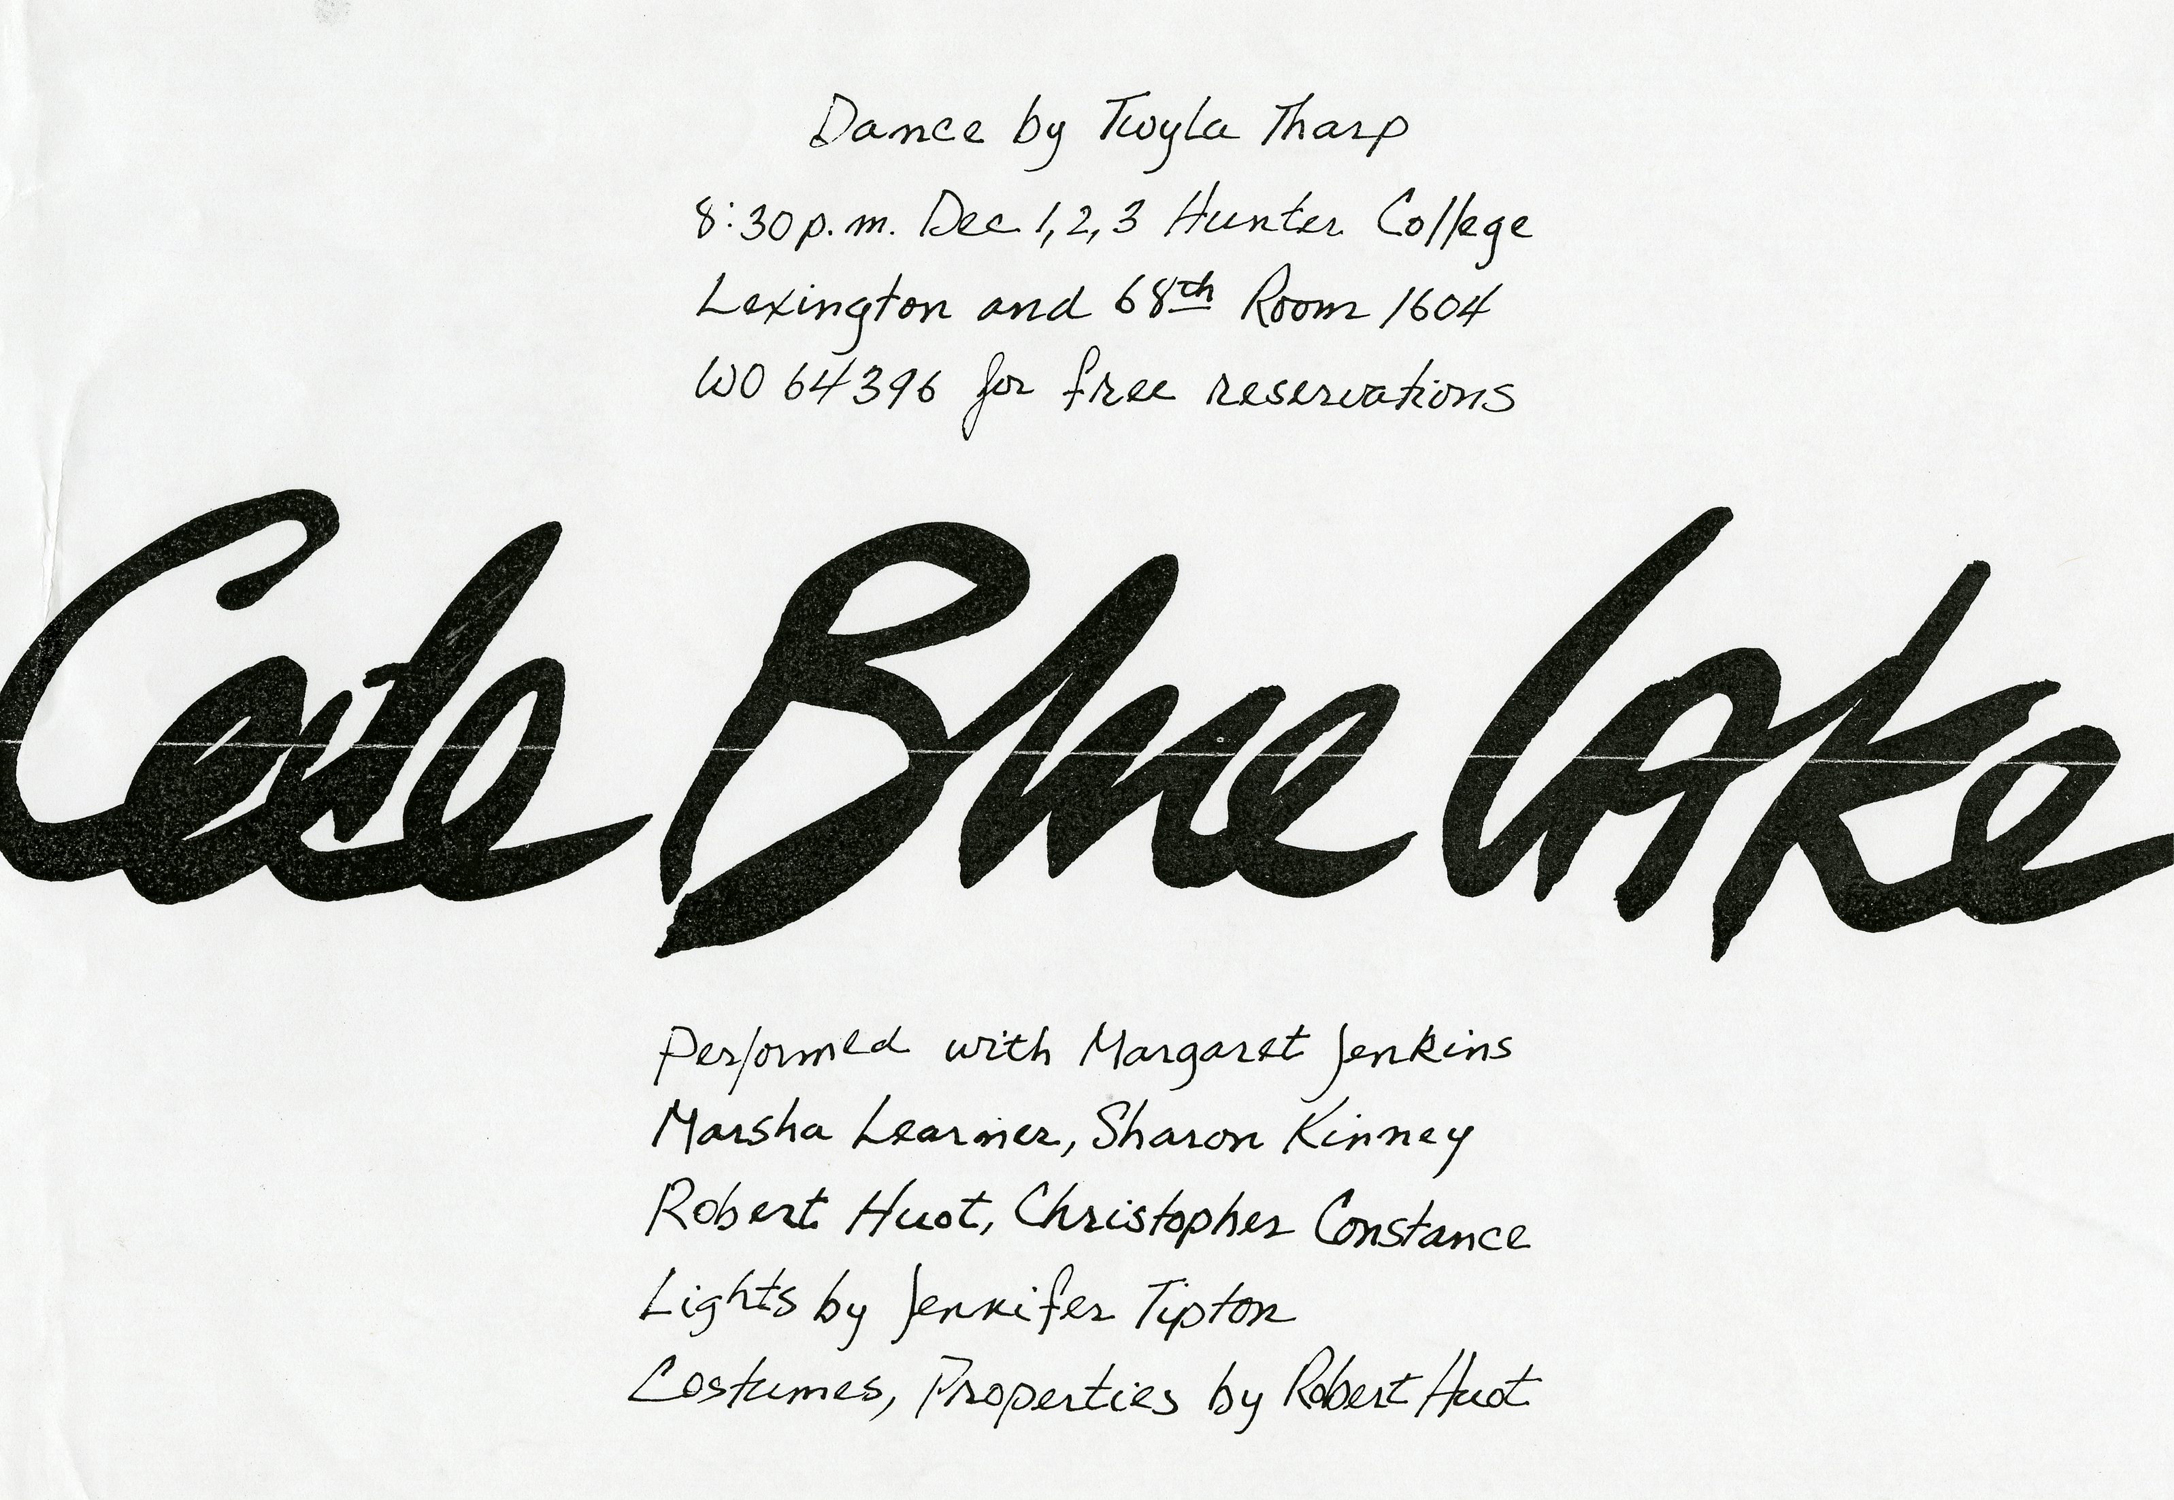 Dance by Twyla Tharp
8:30 p.m. Dec 1,2,3 Hunter College
Lexington and 68th Room 1604
WO 64396 for free reservations
Cede Blue Lake
Performed with Margaret Jenkins
Marsha Learner, Sharon Kinney
Robert Huot, Christopher Constance
Lights by Jennifer Tipton
Costumes, Properties by Robert Huot